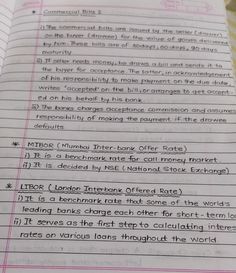 * Commercial Bills :
i) The commercial bills are issued by the seller (drawer)
on the buyer (drawee) for the value of goods delivered
by him. These bills are of 30 days, 60 days, 90 days
maturity
ii) If seller needs money, he draws a bill and sends it to
the buyer for acceptance. The latter, in acknowledgement
of his responsibility to make payment on the due date,
writes "accepted" on the bill, or arranges to get accept-
ed on his behalf by his bank.
iii) The banks charges acceptance commission and assumes
responsibility of making the payment if the drawee
defaults
* MIBOR (Mumbai Inter-bank Offer Rate)
i) It is a benchmark rate for call money market
ii) It is decided by NSE (National Stock Exchange)
* LIBOR (London Interbank Offered Rate)
i) It is a benchmark rate that some of the world's
leading banks charge each other for short-term loa
ii) It serves as the first step to calculating interes
rates on various loans throughout the world